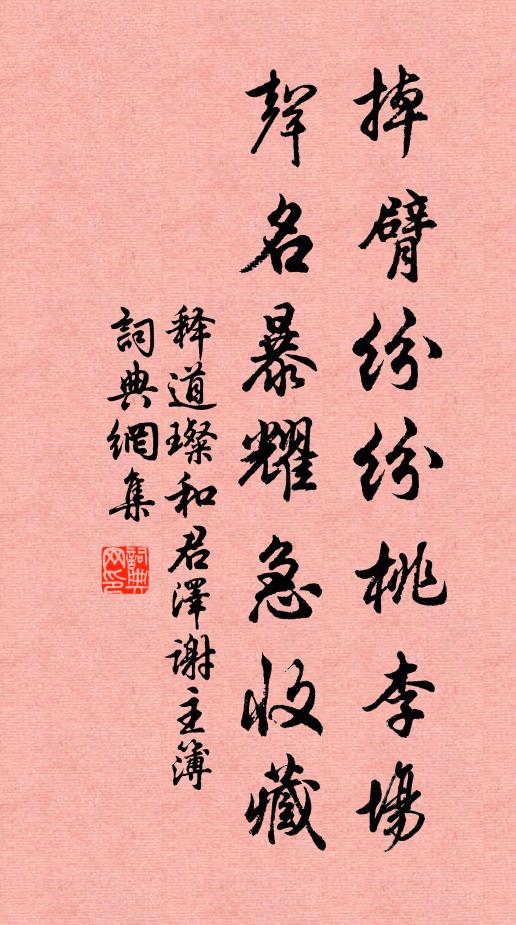 掉臂紛紛桃李場
聲名暴耀急收藏
释道璨和君澤谢主簿
詞典網集
詞典網印